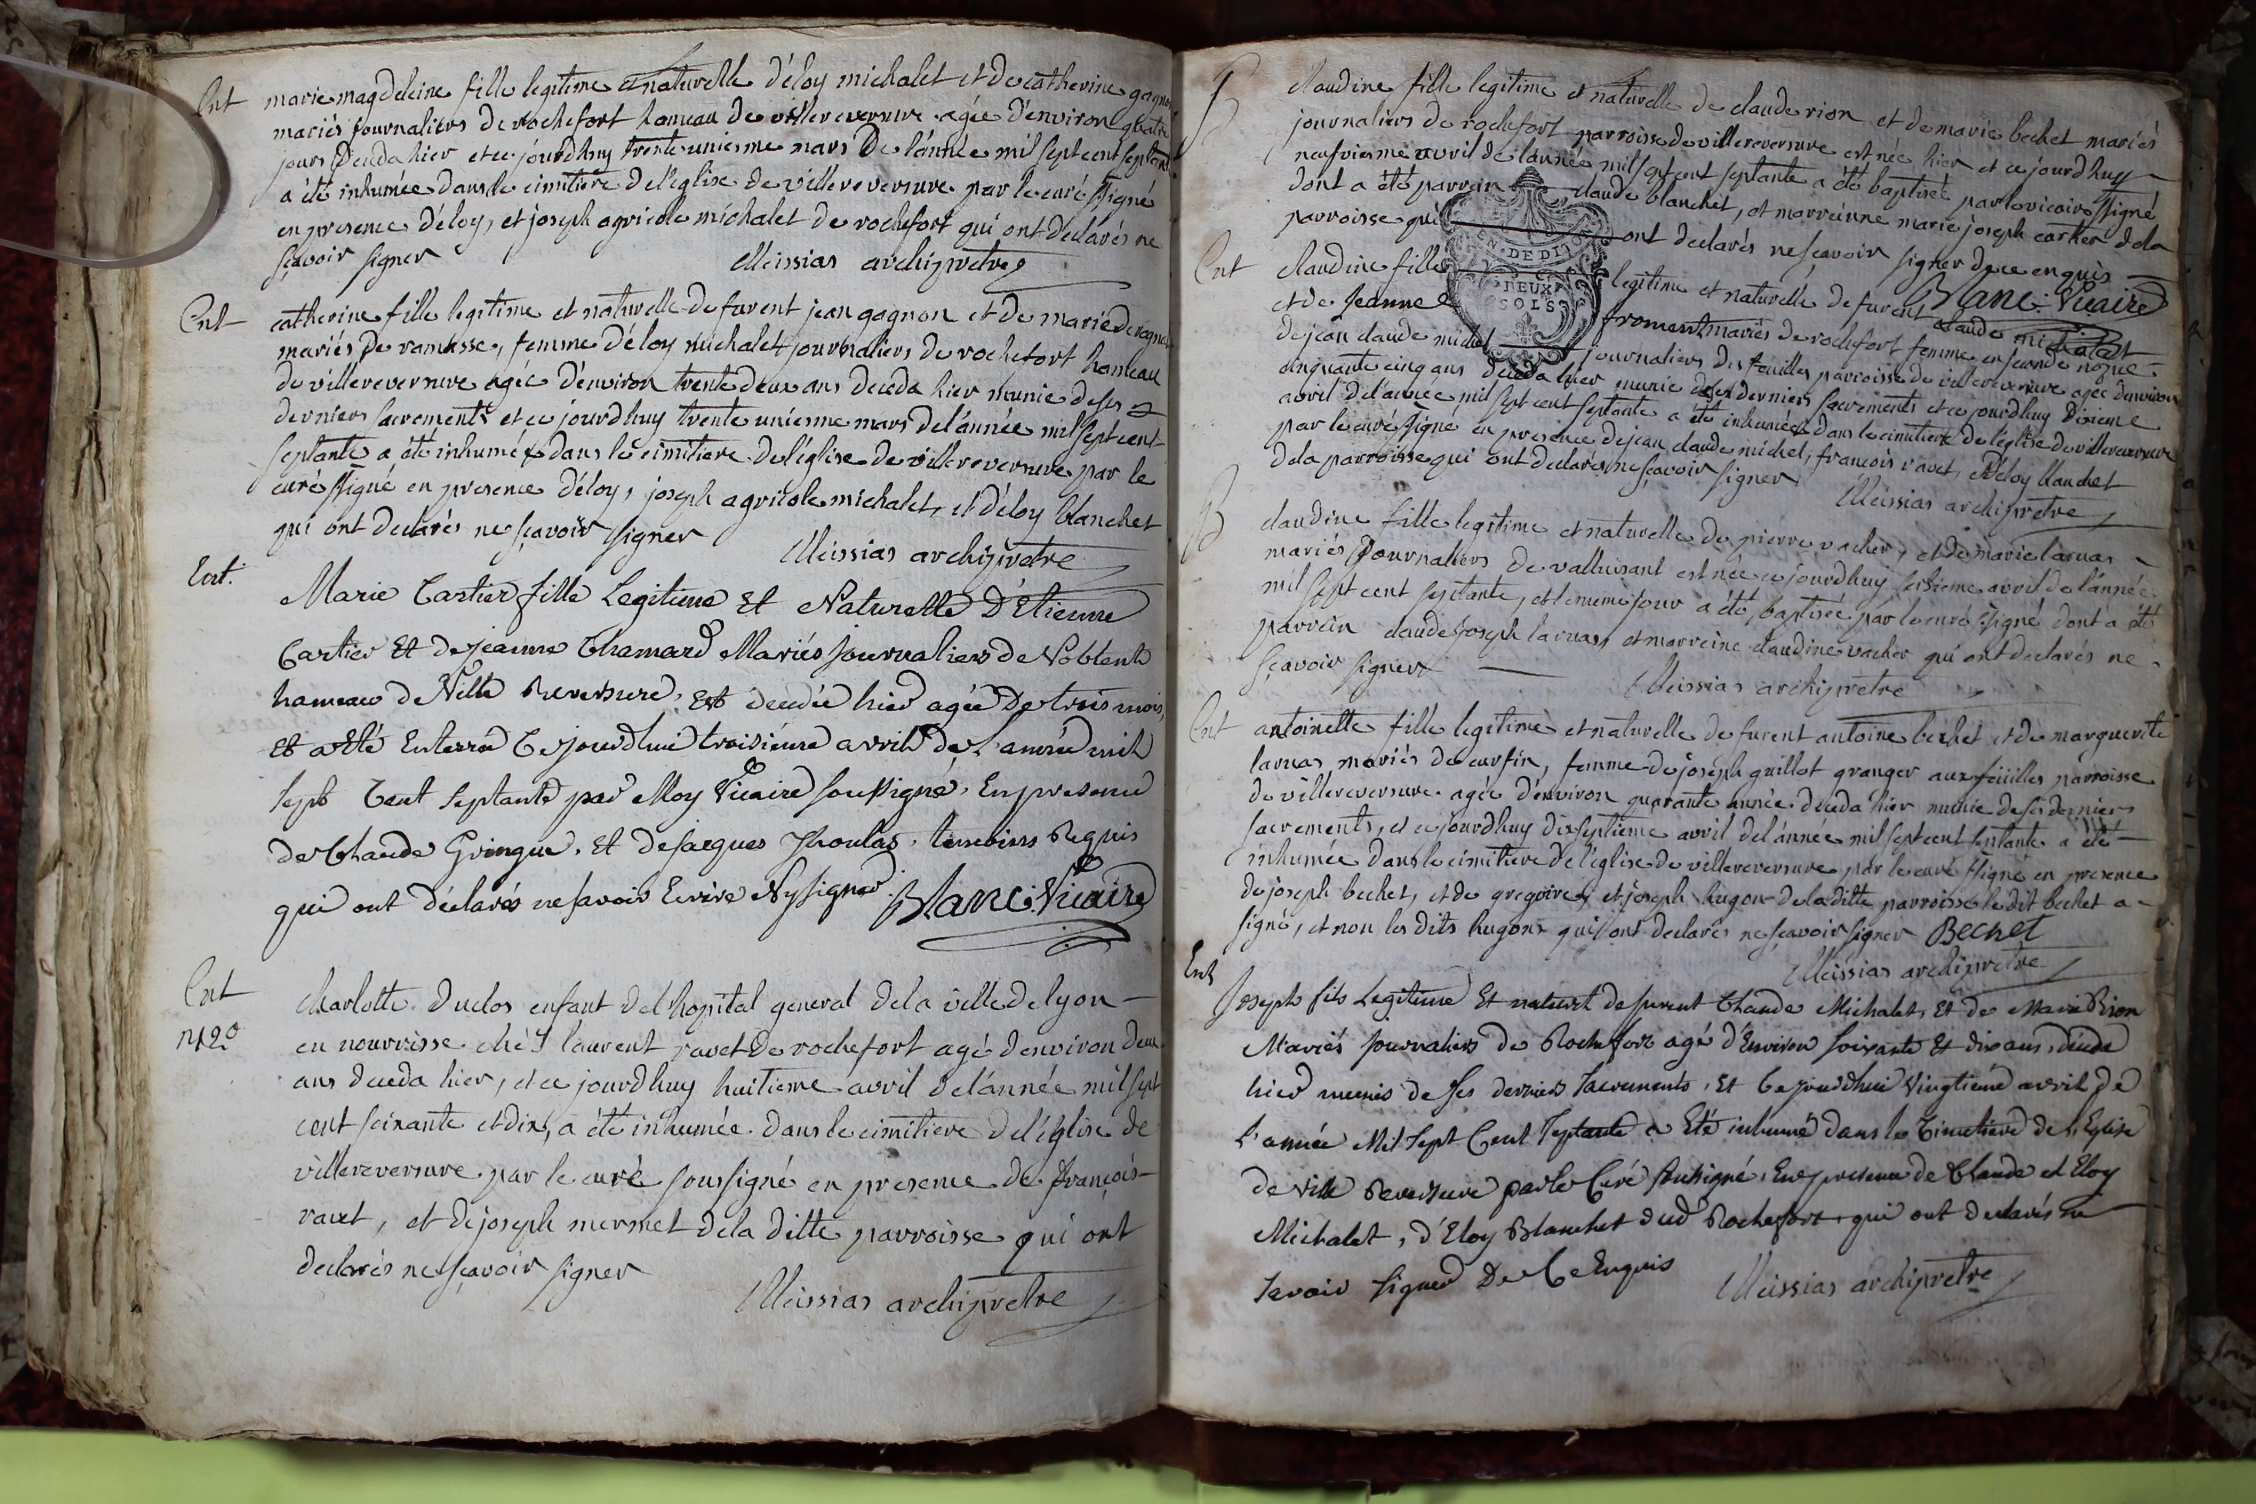 Ent
marie magdeleine fille legitime et naturelle d'éloy michalet et de catherine gagnon
mariés journaliers de rochefort hameau de villereversure agée d'environ quatre
jours deceda hier et ce jourdhuy trente unieme mars de l'année mil sept cent septante
a été inhumée dans le cimitiere de l'eglise de villereversure par le curé ssigné
en presence d'éloy, et joseph agricole michalet de rochefort qui ont declarés ne
sçavoir signer
Meissias archiprètre
Ent
catherine fille legitime et naturelle de furent jean gagnon et de marie
mariés de ramasse, femme d'éloy michalet journaliers de rochefort hameau
de villereversure agée d'environ trente deux ans deceda hier munie de ses
derniers sacrements et ce jourdhuy trente unieme mars de l'année mil sept cent
septante a été inhumée dans le cimitiere de l'église de villereversure par le
curé ssigné en presence d'éloy, joseph agricole michalet, et d'éloy blanchet
qui ont declarés ne sçavoir signer
Meissias archiprètre
Ent.
Marie Cartier fille Legitime Et Naturelle D'Etienne
Cartier Et de jeanne Chamard Mariés journaliers de Noblens
hameau de Ville Reversure. Est decedée hier agée De trois mois,
Et a Eté Enterrée Ce jourdhui troisiéme avril de L'année mil
sept Cent septante par Moy Vicaire soussigné, En presence
de Claude Gringue, Et de jacques temoins Requis
qui ont déclarés ne savoir Ecrire Ny signer. Blanc. Vicaire
Ent
n1 2o
charlotte duclos enfant de l'hopital general de la ville de lyon
en nourrisse chès laurent ravet de rochefort agé d'environ deux
ans deceda hier, et ce jourdhuy huitieme avril de l'année mil sept
cent soixante et dix, a été inhumée dans le cimitiere de l'église de
villereversure par le curé soussigné en presence de françois
ravet, et de joseph mermet de la ditte parroisse qui ont
declarés ne sçavoir signer
Meissias archiprètre
B
claudine fille legitime et naturelle de claude rion et de marie bechet mariés
journaliers de rochefort parroisse de villereversure est née hier et ce jourdhuy
neufvieme avril de l'année mil sept cent septante a été baptisée par le vicaire ssigné
dont a été parrein claude blanchet, et marreinne marie joseph cartier de la
parroisse qui ont declarés ne sçavoir signer de ce enquis
Blanc. Vicaire
GEN. DE DIJON
DEUX
SOLS
Ent
claudine fille legitime et naturelle de furent claude michalet
et de jeanne froment mariés de rochefort femme en seconde nopce
de jean claude michel journaliers des feuilles parroisse de villereversure agée d'environ
cinquante cinq ans deceda hier munie de ses derniers sacrements et ce jourdhuy dixieme
avril de l'année mil sept cent septante a été inhumée dans le cimitiere de l'église de villereversure
par le curé ssigné en presence de jean claude michel, françois ravet, et d'éloy blanchet
de la parroisse qui ont declarés ne sçavoir signer
Meissias archiprètre
B
claudine fille legitime et naturelle de pierre vacher, et de marie laruas
mariés journaliers de valluisant est née ce jourdhuy seizieme avril de l'année
mil sept cent septante, et le meme jour a été baptisée par le curé ssigné dont a été
parrein claude joseph laruas, et marreine claudine vacher qui ont declarés ne
sçavoir signer
Meissias archiprètre
Ent
antoinette fille legitime et naturelle de furent antoine bechet et de marguerite
laruas mariés de curfin, femme de joseph guillot granger aux feüilles parroisse
de villereversure agée d'environ quarante année deceda hier munie de ses derniers
sacrements, et ce jourdhuy dixseptieme avril de l'année mil sept cent septante a été
inhumée dans le cimitiere de l'église de villereversure par le curé ssigné en presence
de joseph bechet, et de gregoire, et joseph hugon de la ditte parroisse le dit bechet a
signé, et non les dits hugons qui ont declarés ne sçavoir signer Bechet
Meissias archiprètre
Ent
Joseph fils Legitime Et naturel de furent Claude Michalet, Et de Marie Rion
Mariés journaliers de Rochefort agé d'Environ soixante Et dix ans, décéda
hier munis de ses derniers sacrements, Et Ce jourdhui Vingtiéme avril de
L'année Mil sept Cent septante a Eté inhumé dans le Cimetiére de l'Eglise
de Ville Reversure par le Curé soussigné, En presence de Claude et Eloy
Michalet, d'Eloy Blanchet dud Rochefort, qui ont declarés ne
savoir signer De Ce Enquis
Meissias archiprètre